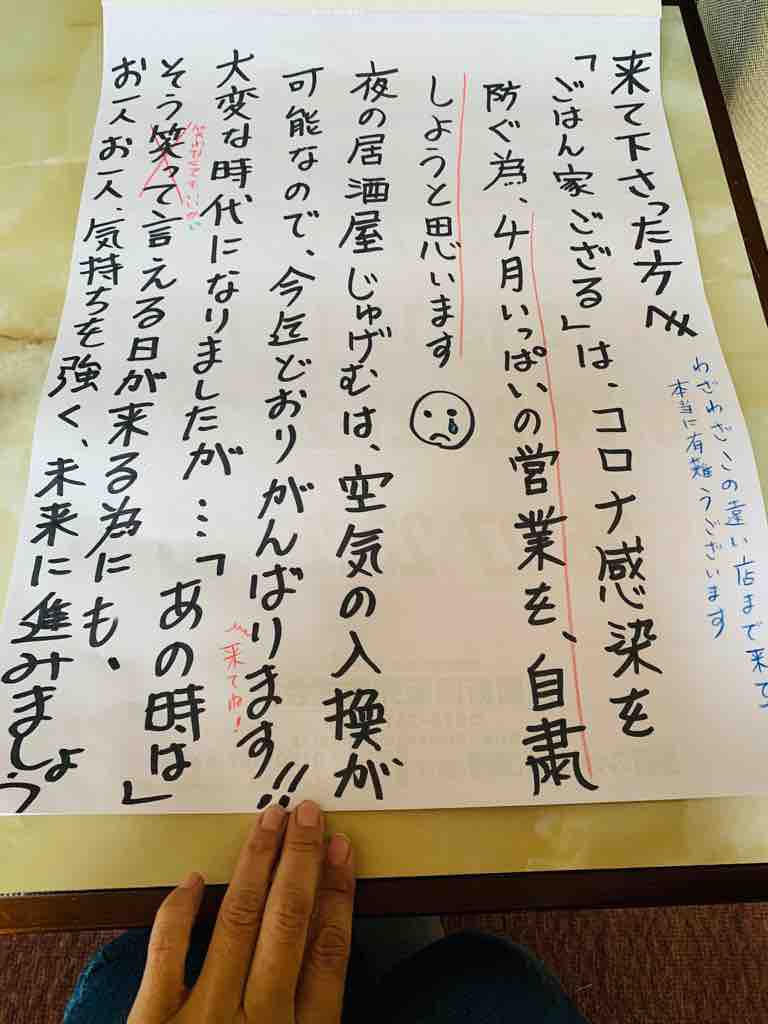 来て下さった方へ
わざわざこの遠い店まで来て
本当に有難うございます
「ごはん家ござる」は、コロナ感染を
防ぐ為、4月いっぱいの営業を、自粛
しようと思います
夜の居酒屋じゅげむは、空気の入換が
可能なので、今迄どおりがんばります!!
来てね!
大変な時代になりましたが…「あの時は」
そう笑って言える日が来る為にも、
お一人お一人、気持ちを強く、未来に進みましょう